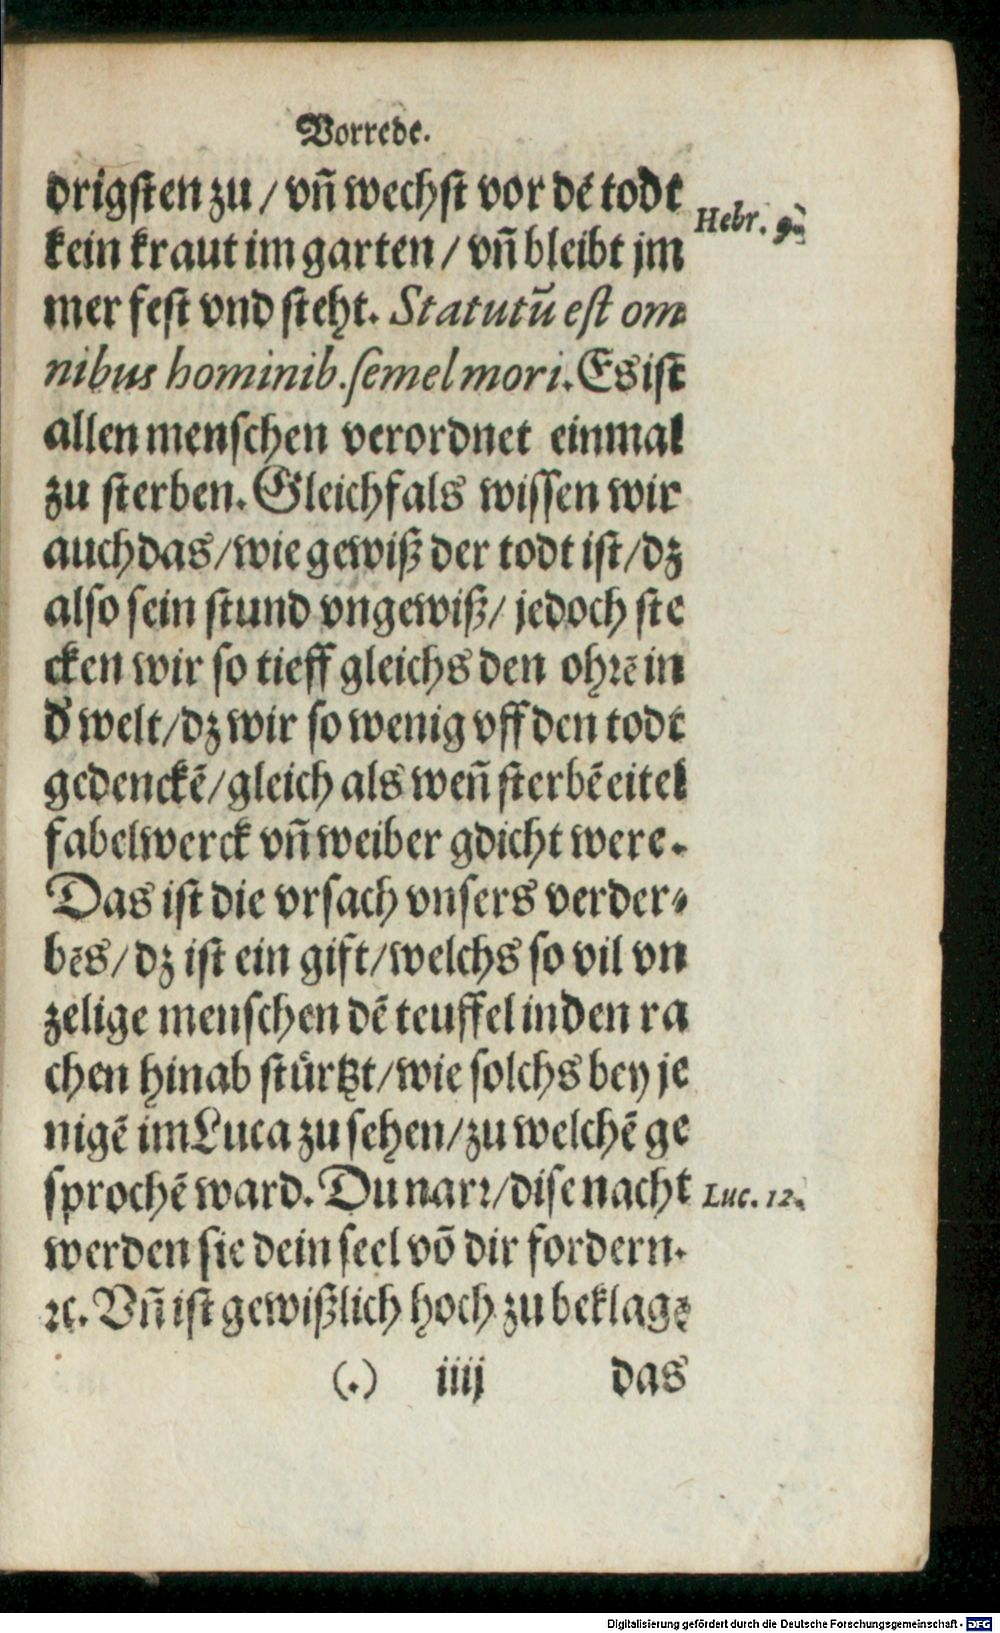 Vorrede.
drigsten zu / vñ wechst vor dē todt
Hebr. 9.
kein kraut im garten / vñ bleibt jm
mer fest vnd steht. Statutū est om
nibus hominib. semel mori. Es ist
allen menschen verordnet einmal
zu sterben. Gleichfals wissen wir
auch das/wie gewiß der todt ist/dz
also sein stund vngewiß/ jedoch ste
cken wir so tieff gleichs den ohrē in
d' welt/dz wir so wenig vff den todt
gedenckē/gleich als weñ sterbē eitel
fabelwerck vñ weiber gdicht were.
Das ist die vrsach vnsers verder⸗
bēs/ dz ist ein gift/welchs so vil vn
zelige menschen dē teuffel in den ra
chen hinab stürtzt/wie solchs bey je
nigē im Luca zu sehen/zu welchē ge
sprochē ward. Du narr/dise nacht
Luc. 12.
werden sie dein seel võ dir fordern.
ꝛc. Vñ ist gewißlich hoch zu beklagē
(.) iiij das
Digitalisierung gefördert durch die Deutsche Forschungsgemeinschaft - DFG